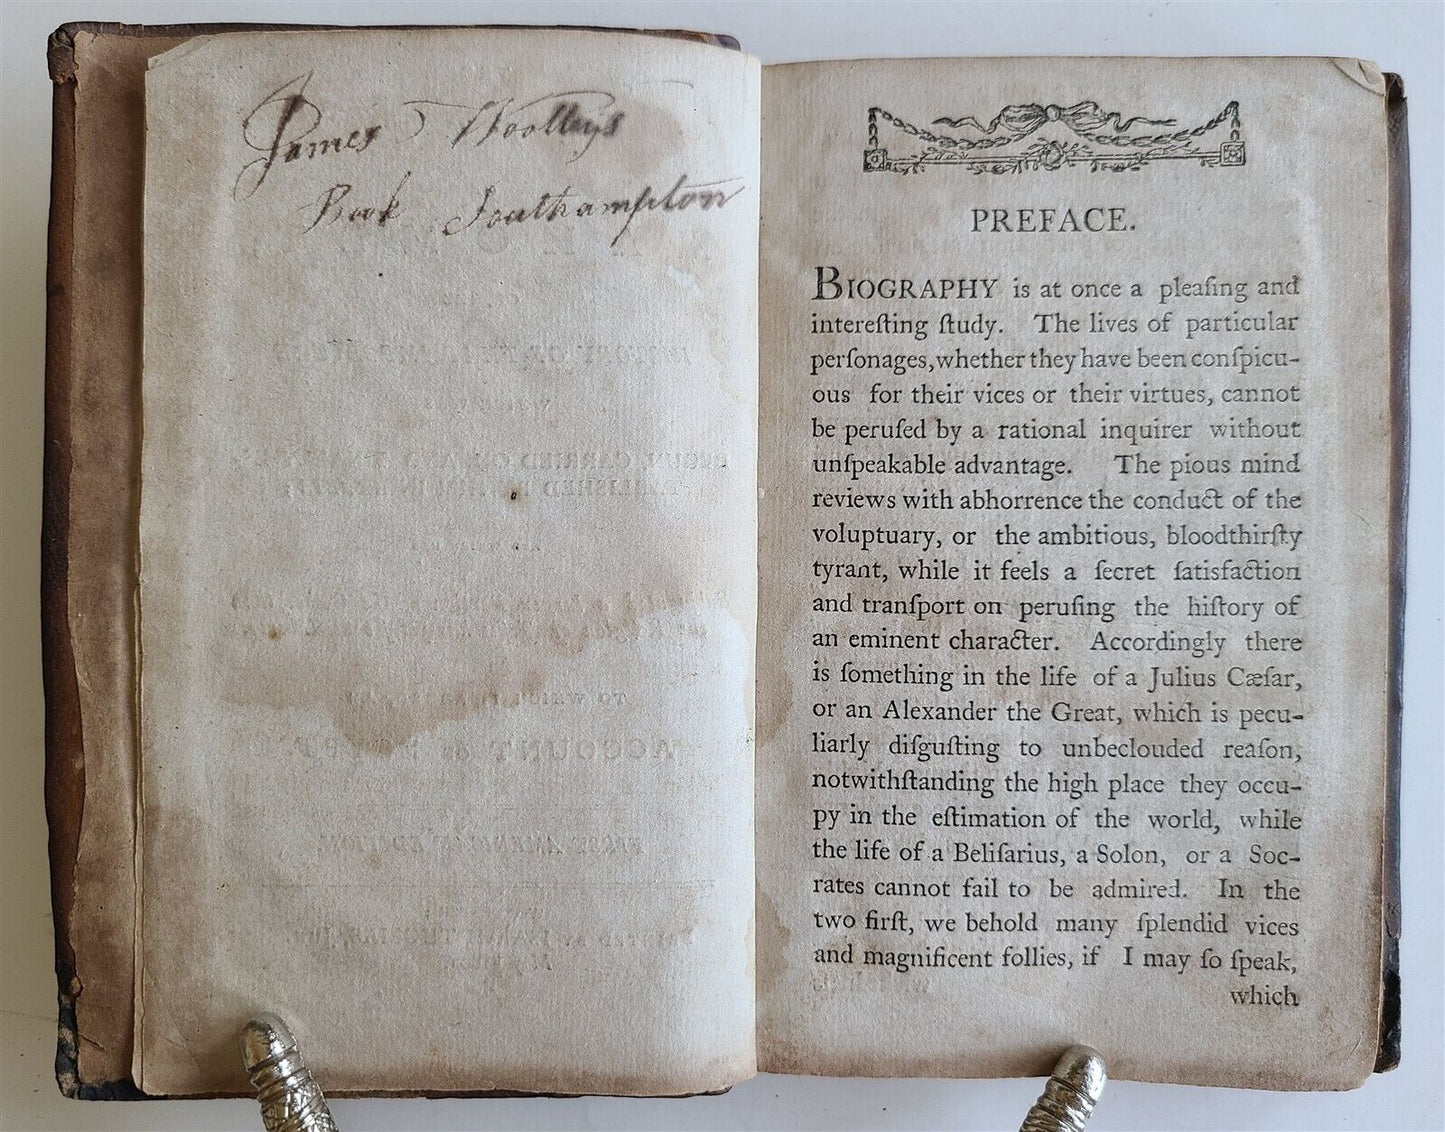 James Woolleys
Book Southampton
PREFACE.
BIOGRAPHY is at once a pleaſing and
intereſting ſtudy. The lives of particular
perſonages, whether they have been conſpicu-
ous for their vices or their virtues, cannot
be peruſed by a rational inquirer without
unſpeakable advantage. The pious mind
reviews with abhorrence the conduct of the
voluptuary, or the ambitious, bloodthirſty
tyrant, while it feels a ſecret ſatisfaction
and tranſport on peruſing the hiſtory of
an eminent character. Accordingly there
is ſomething in the life of a Julius Cæſar,
or an Alexander the Great, which is pecu-
liarly diſguſting to unbeclouded reaſon,
notwithſtanding the high place they occu-
py in the eſtimation of the world, while
the life of a Beliſarius, a Solon, or a Soc-
rates cannot fail to be admired. In the
two firſt, we behold many ſplendid vices
and magnificent follies, if I may ſo ſpeak,
which